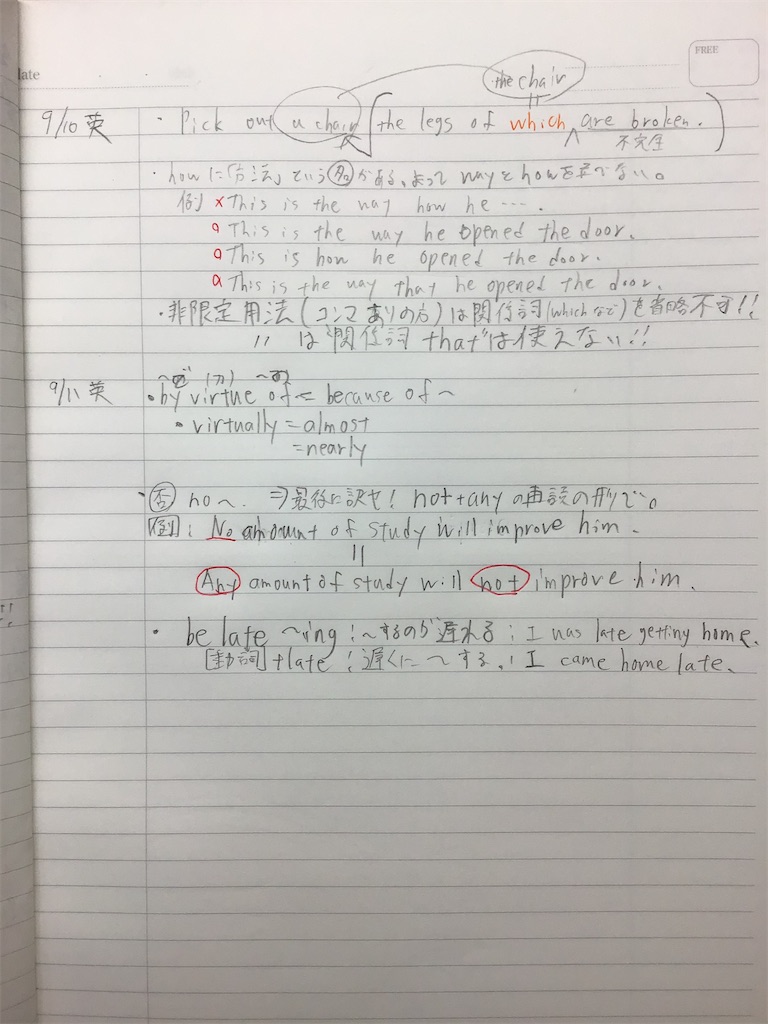 FREE
ate
the chair
9/10 英 ・Pick out a chair [the legs of which ∧ are broken.]
不完全
・howに「方法」という㊔がある、よってwayとhowを並べない。
例 ×This is the way how he ….
○This is the way he opened the door.
○This is how he opened the door.
○This is the way that he opened the door.
・非限定用法(コンマありの方)は関係詞(whichなど)を省略不可!!
〃 は関係詞 thatは使えない!!
9/11 英 ・by virtue of = because of ～
・virtually = almost
= nearly
・否 no ～. ⇒最後に訳せ! not+any の再読の形で。
例: No amount of study will improve him.
||
Any amount of study will not improve him.
・be late ～ing : ～するのが遅れる ; I was late getting home.
[動詞]+late : 遅くに～する。: I came home late.